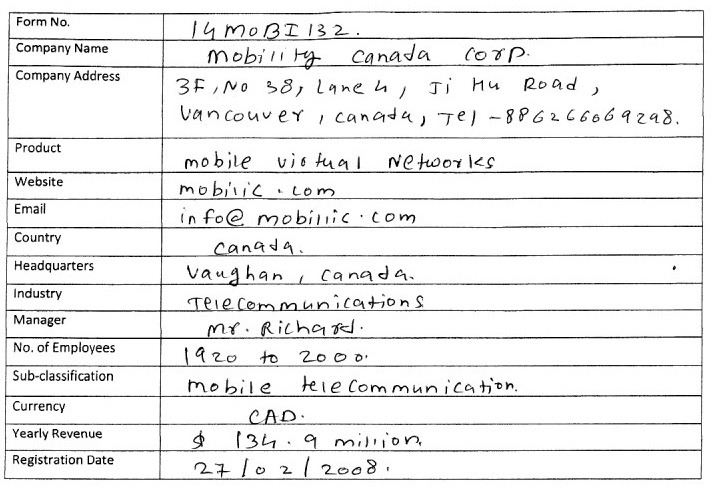 Form No. 14MOBI132.
Company Name Mobility Canada Corp.
Company Address 3F, No 38, Lane 4, Ji Hu Road,
Vancouver, Canada, Tel -886266069298.
Product mobile virtual Networks
Website mobilic.com
Email info@mobilic.com
Country Canada.
Headquarters Vaughan, Canada.
Industry Telecommunications
Manager Mr. Richard.
No. of Employees 1920 to 2000.
Sub-classification mobile telecommunication.
Currency CAD.
Yearly Revenue $ 134.9 million.
Registration Date 27/02/2008.